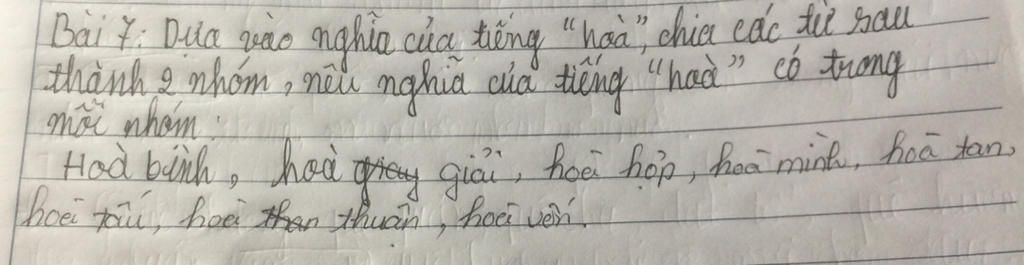 Bài 7: Dựa vào nghĩa của tiếng "hoà", chia các từ sau
thành 2 nhóm, nêu nghĩa của tiếng "hoà" có trong
mỗi nhóm:
Hoà bình, hoà giải, hoà hợp, hoà mình, hoà tan,
hoà tấu, hoà thuận, hoà vốn.